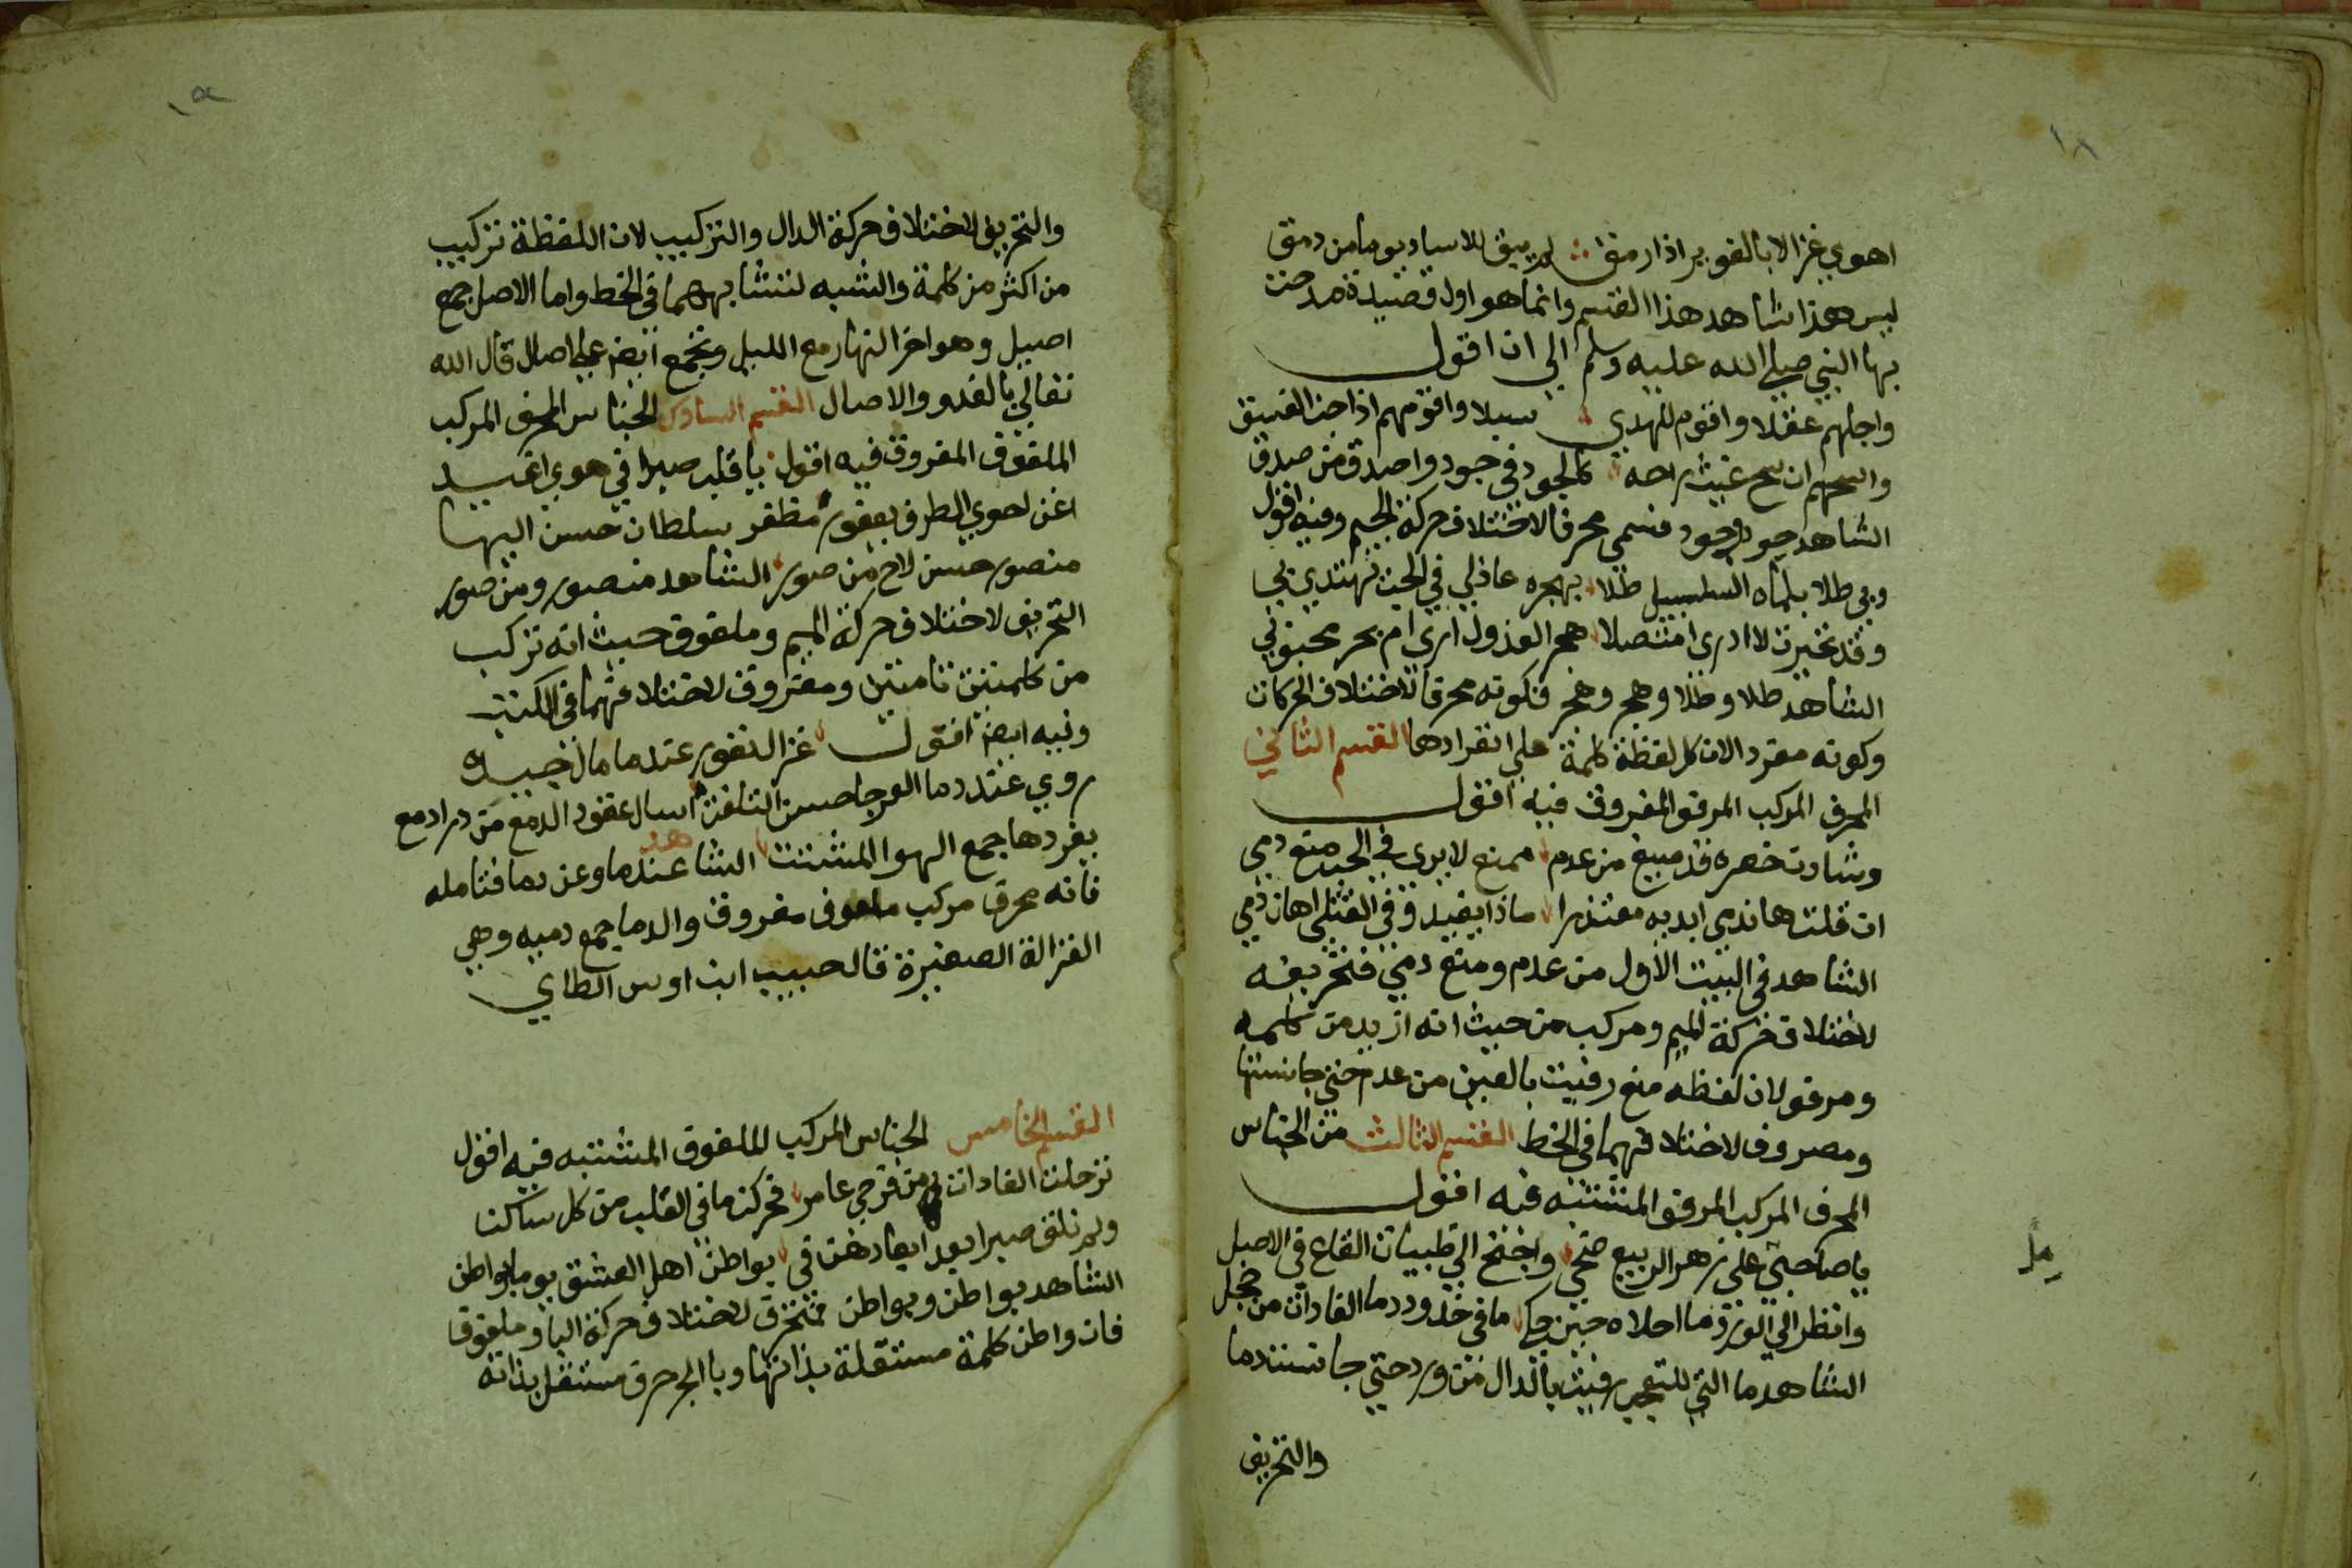 ١٨
اهوي غزالا بالغوير اذا رمق لم يبق للاساد يوما من رمق
ليس هذا شاهد هذا القسم وانما هو اول قصيدة مدحت
بها النبي صلى الله عليه وسلم الي ان اقول
واجلهم عقلا واقوم للهدي سبلا واقومهم اذا جن الغسق
واسمحهم ان سح غيث راحه كالجود في جود واصدق من صدق
الشاهد جود وجود فسمي محرفا لاختلاف حركة الجيم وفيه اقول
وبي طلا بلماه السلسبيل طلا بهجره عاذلي في الحب تهتدي بي
وقد تحيرت لا ادري امتصلا هجر العذول اري ام هجر محبوبي
الشاهد طلا وطلا وهجر وهجر فكونه محرفا لاختلاف الحركات
وكونه مفردا لان كل لفظة كلمة علي انفرادها القسم الثاني
المحرف المركب المرفو المفروق فيه اقول
وشادن خصره قد صيغ من عدم ممنع لا يري في الحب منع دمي
ان قلت ها ندمي ابديه معتذرا ماذا يفيد وفي القتلي اهان دمي
الشاهد في البيت الاول من عدم ومنع دمي فتحريفه
لاختلاف حركة الميم ومركب من حيث انه ازيد من كلمه
ومرفو لان لفظه منع رفيت بالعين من عدم حتي جانستها
ومصروف لاختلافهما في الخط القسم الثالث من الجناس
المحرف المركب المرفو المشتبه فيه اقول
يا صاحبي علي زهر الربيع ضحي واجنح الي ظبيات القاع في الاصل
وانظر الي الورد ما احلاه حين حكا ما في خدود دما الغادات من خجل
الشاهد ما التي للتعجب رفيت بالدال من ورد حتي جانست دما
والتحريف
١٩
والتحريف لاختلاف حركة الدال والتركيب لان اللفظة تركيب
من اكثر من كلمة والشبه لتشابههما في الخط واما الاصل جمع
اصيل وهو اخر النهار مع الليل وتجمع ايضا علي اصال قال الله
تعالي بالغدو والاصال القسم السادس الجناس المحرف المركب
الملفوف المفروق فيه اقول يا قلب صبرا في هوي اغيد
اغن احوي الطرف يعفور مظفر سلطان حسن البها
منصور حسن لاح من صور الشاهد منصور ومن صور
التحريف لاختلاف حركة الميم وملفوف حيث انه تركب
من كلمتين تامتين ومفروق لاختلافهما في الكتب
وفيه ايضا اقول غزال نفور عندما مال جيده
روي عند دما العرجا حسن التلفت اسال عقود الدمع من در ادمع
يفرد هاجمع الهوا المشتت الشاهد عندما وعن دما فتامله
فانه محرف مركب ملفوف مفروق والدما جمع دميه وهي
الغزالة الصغيرة قال حبيب ابن اوس الطاي
القسم الخامس الجناس المركب الملفوف المشتبه فيه اقول
ترحلت الغادات من قرجي عامر فحركن ما في القلب من كل ساكن
ولم نلق صبرا بعد ابعادهن في بواطن اهل العشق يوما بواطن
الشاهد بواطن وبواطن فتحرف لاختلاف حركة البا وملفوفا
فان واطن كلمة مستقلة بذاتها وبا الجر حرف مستقل بذاته